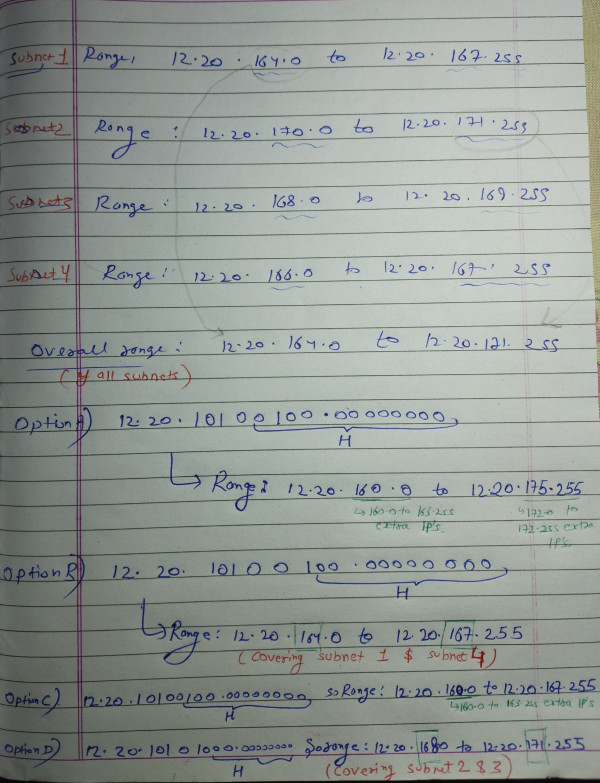 Subnet 1 Range: 12.20.164.0 to 12.20.167.255
Subnet2 Range: 12.20.170.0 to 12.20.171.255
Subnet3 Range: 12.20.168.0 to 12.20.169.255
Subnet4 Range: 12.20.166.0 to 12.20.167.255
Overall range: 12.20.164.0 to 12.20.171.255
(of all subnets)
Option A) 12.20.10100100.00000000
H
Range: 12.20.160.0 to 12.20.175.255
↳160.0 to 163.255 extra IP's.
↳172.0 to 172.255 extra IP's.
Option B) 12.20.10100100.00000000
H
Range: 12.20.164.0 to 12.20.167.255
(Covering subnet 1 $ subnet 4)
Option C) 12.20.10100100.00000000 so Range: 12.20.160.0 to 12.20.167.255
H ↳160.0 to 163.255 extra IP's
Option D) 12.20.10101000.00000000 So range: 12.20.168.0 to 12.20.171.255
H (Covering subnet 2 & 3)